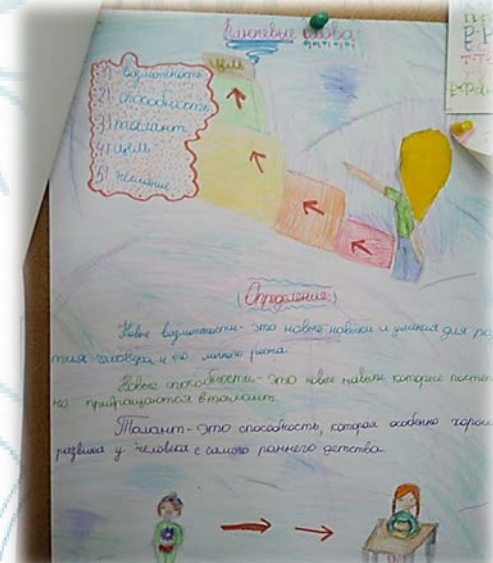 Ключевые слова
Цель
1) возможность
2) способность
3) талант
4) цель
5) желание
(Определение)
Новые возможности - это новые навыки и умения для раз
тия человека и его личного роста.
Новые способности - это новые навыки которые постеп
но превращаются в талант.
Талант - это способность, которая особенно хорошо
развита у человека с самого раннего детства.